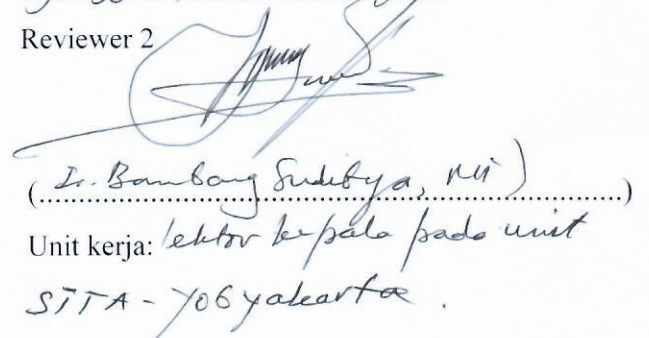 Reviewer 2
(Ir. Bambang Sudibya, MT)
Unit kerja: lektor kepala pada unit
STTA - Yogyakarta.